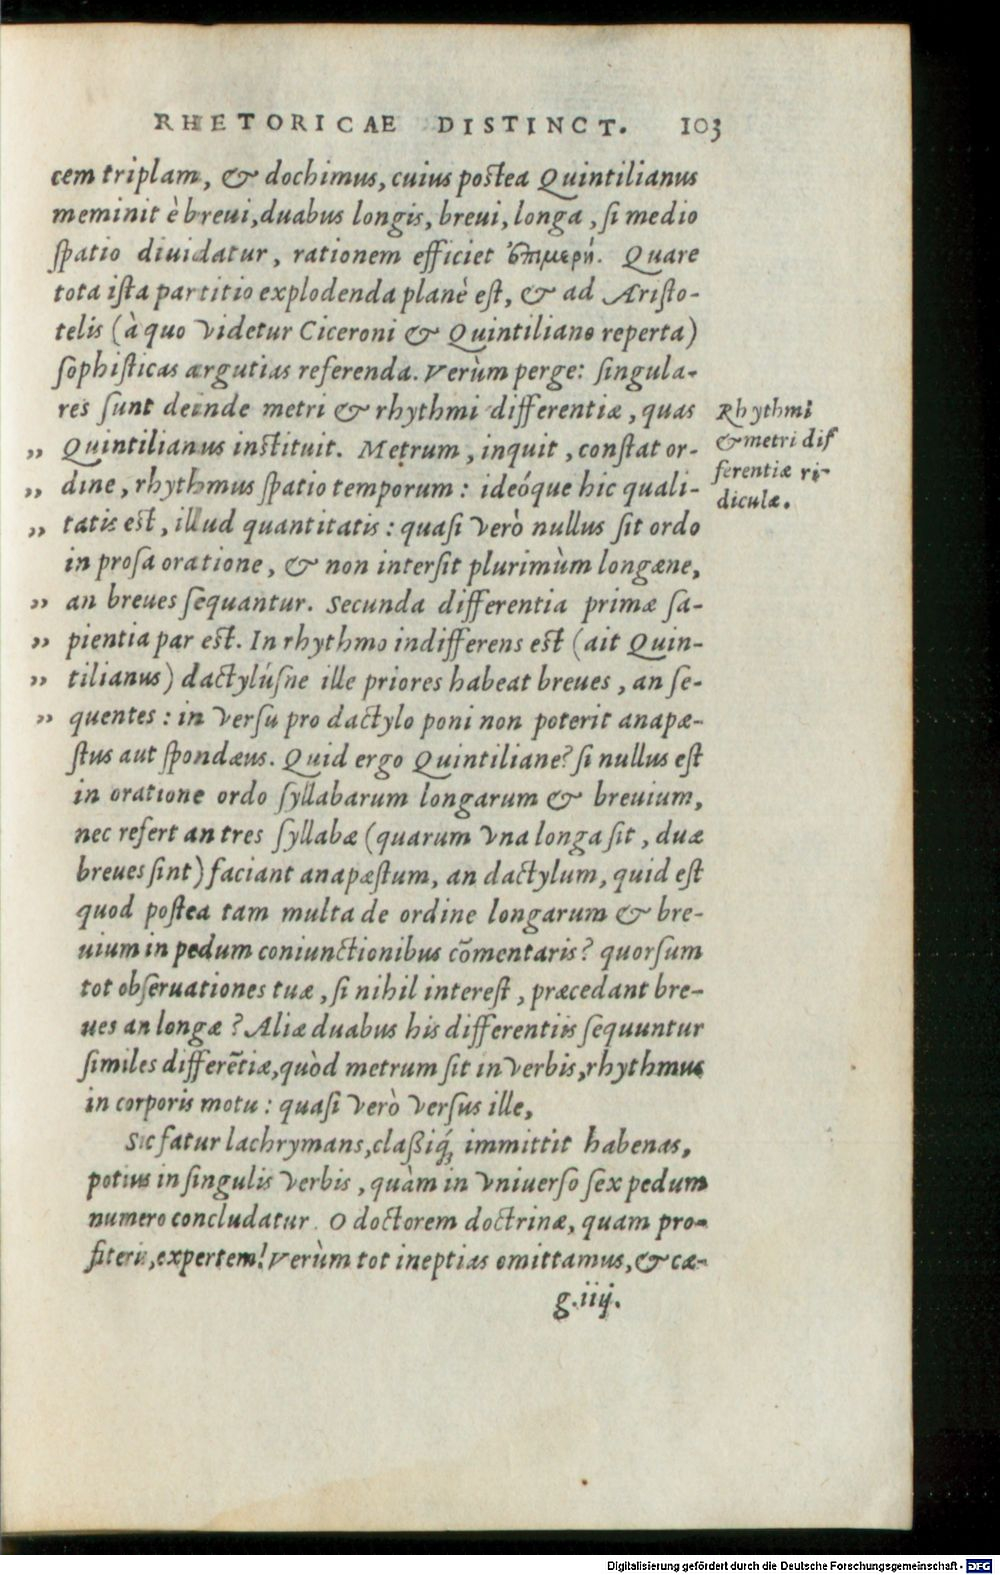 RHETORICAE DISTINCT. 103
cem triplam, & dochimus, cuius postea Quintilianus
meminit è breui, duabus longis, breui, longa, si medio
spatio diuidatur, rationem efficiet ἐπιμερῆ. Quare
tota ista partitio explodenda planè est, & ad Aristo-
telis (à quo videtur Ciceroni & Quintiliano reperta)
sophisticas argutias referenda. Verùm perge: singula-
res sunt deinde metri & rhythmi differentiæ, quas
„ Quintilianus instituit. Metrum, inquit, constat or-
„ dine, rhythmus spatio temporum: ideóque hic quali-
„ tatis est, illud quantitatis: quasi verò nullus sit ordo
in prosa oratione, & non intersit plurimùm longæne,
„ an breues sequantur. Secunda differentia primæ sa-
„ pientia par est. In rhythmo indifferens est (ait Quin-
„ tilianus) dactylúsne ille priores habeat breues, an se-
„ quentes: in versu pro dactylo poni non poterit anapæ-
stus aut spondæus. Quid ergo Quintiliane? si nullus est
in oratione ordo syllabarum longarum & breuium,
nec refert an tres syllabæ (quarum vna longa sit, duæ
breues sint) faciant anapæstum, an dactylum, quid est
quod postea tam multa de ordine longarum & bre-
uium in pedum coniunctionibus cōmentaris? quorsum
tot obseruationes tuæ, si nihil interest, præcedant bre-
ues an longæ? Aliæ duabus his differentiis sequuntur
similes differētiæ, quòd metrum sit in verbis, rhythmus
in corporis motu: quasi verò versus ille,
Sic fatur lachrymans, classiq́; immittit habenas,
potius in singulis verbis, quàm in vniuerso sex pedum
numero concludatur. O doctorem doctrinæ, quam pro-
fiteris, expertem! Verùm tot ineptias omittamus, & cæ-
g.iiij.
Rhythmi
& metri dif
ferentiæ ri-
diculæ.
Digitalisierung gefördert durch die Deutsche Forschungsgemeinschaft - DFG